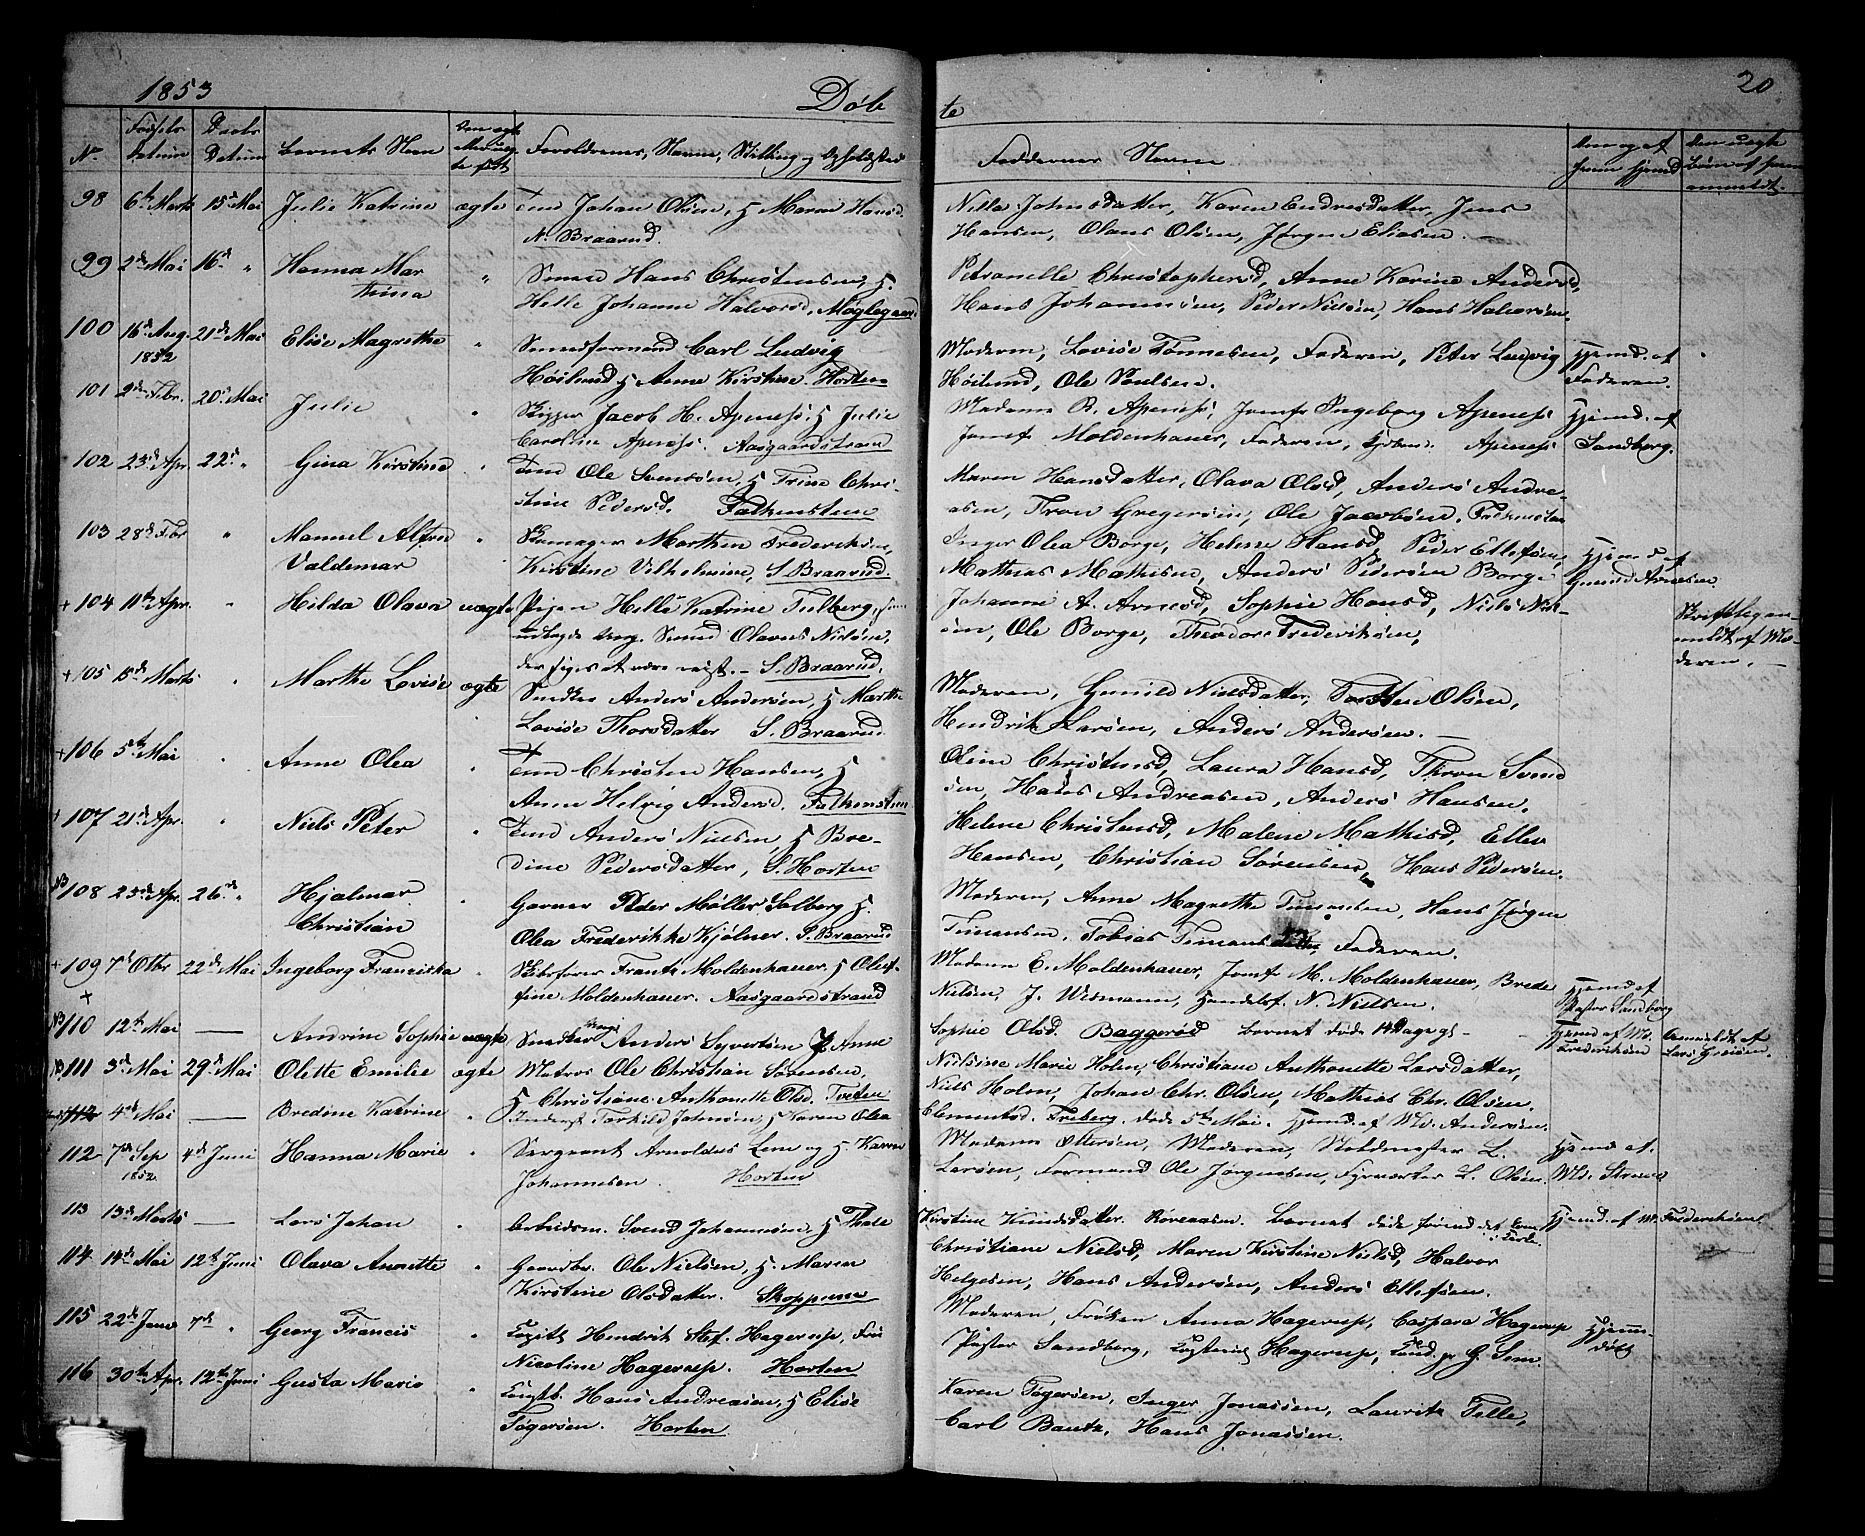 1853 Døb
te 20
No Fødsels Datum Daabs Datum Barnets Navn Om ægte eller uægte født Forældrenes Navne, Stilling og Opholdssted
Faddernes Navne
98 6te Marts 15d Mai Julie Katrine ægte Tmd Johan Olsen, H Maren Hansd
N. Braarud.
Nilla Johnsdatter, Karen Endresdatter, Jens
Hansen, Olaus Olsen, Jørgen Eliasen. —
99 2d Mai 16d " Hanna Mar " Smed Hans Christensen, H.
thina Helle Johanne Halvorsd, Møglegaard
Petronelle Christophersd, Anne Karine Andersd,
Hans Johannsen, Peder Nielsen, Hans Halvorsen.
100 16d Aug. 21de Mai Elise Magrethe " Smedformand Carl Ludvig
1852 Høilund H Anne Kirstine. Horten
Moderen, Lovise Tønnesen, Faderen, Peter Ludvig Hjemd. af
Høilund, Ole Poulsen. Faderen.
101 2den Febr. 20d Mai Julie " Skipper Jacob H. Apenæss, H Julie
Caroline Apenæss. Aasgaardstrand
Madame B. Apenæss, Jomfr Ingeborg Apenæss Hjemd. af
Jomf Moldenhauer, Faderen, Apenæss Sandberg.
102 23d Apr 22d " Gina Kirstine " Tmd Ole Svensen, H Trine Chri-
stine Pedersd. Falkensten
Maren Hansdatter, Olava Olsd, Anders Andre-
asen, Tron Gregersen, Ole Jacobsen. Falkensten
103 28d Febr " Manuel Alfred " Skomager Marthin Frederiksen,
Valdemar Kirstine Vilhelmine, S. Braarud.
Inger Olea Borge, Helene Hansd, Peder Ellefsen, Hjemd af
Mathias Mathisen, Anders Pedersen Borge Gunild Arnesen
+ 104 11te Apr. " Hilda Olava uægte Pigen Helle Katrine Tulberg,
udlagde Ung. Smed Olavus Nielsen,
der siges at være reist. – S. Braarud.
Johanne A. Arnesd, Sophie Hansd, Niels Niel-
sen, Ole Borge, Theodor Frederiksen, Skriftlig an-
meldt af Mo-
deren. —
+ 105 15d Marts " Marthe Lovise ægte Snedker Anders Andersen, H Marthe
Lovise Thorsdatter S. Braarud
Moderen, Gunild Nielsdatter, Torsten Olsen,
Hendrik Larsen, Anders Andersen. —
+ 106 5te Mai " Anne Olea " Tmd Christen Hansen, H
Anne Helvig Andersd. Falkensten
Oline Christensd, Laura Hansd, Thron Svend
sen, Hans Andreasen, Anders Hansen.
+ 107 21d Apr. " Niels Peter " Tmd Anders Nielsen, H Bre-
dine Pedersdatter, S. Horten
Helene Christensd, Malene Mathisd, Ellev
Hansen, Christian Sørensen, Hans Pedersen.
NB 108 23de Apr. 26de " Hjalmar " Garver Peder Møller Solberg H.
Christian Olea Frederikke Kjølner. S. Braarud
Moderen, Anne Magrethe Timansen, Hans Jørgen
Timansen, Tobias Timansen, Faderen.
+ 109 7d Otbr 22de Mai Ingeborg Franciska " Skibsfører Frantz Moldenhauer, H Oluf-
+ fine Moldenhauer. Aasgaardstrand
Madame E. Moldenhauer, Jomfr M. Moldenhauer, Brede Hjemd af
Nielsen, J. Wismann, Handelsf. N. Nielsen. Pastor Sandberg
NB 110 12te Mai — Andrine Sophie uægte Snedker Anders Syvertsen H Anne
Sophie Olsd. Baggerød Barnet døde 14 Dage gl – Hjemd af Md. Frederiksen Anmeldt af Lars Greisen.
NB 111 3d Mai 29de Mai Olette Emilie ægte Matros Ole Christian Sørensen,
H Christiane Anthonette Olsd. Tveten
Nielsine Marie Holm, Christiane Anthonette Larsdatter,
Niels Holm, Johan Chr. Olsen, Mathias Chr. Olsen.
112 4de Mai — Bredine Katrine " Inderst Torkild Johnsen, H Karen Olea
Clementsd. Freberg. døde 5te Mai. Hjemd. af Md. Andersen.
112 7de Sep 4d Juni Hanna Marie " Sergeant Arnoldus Lem og H. Karen
1852 Johannesen. Horten
Madame Ottersen, Moderen, Stoldmester L. Hjemd af.
Larsen, Formand Ole Jørgensen, Fyrvorter L. Olsen Md. Strand
113 13de Marts — Lars Johan " Arbeidsm. Svend Johannesen, H Thale
Kirstine Knudsdatter. Røreaasen. Barnet døde førend det kom i Kirke. Hjemd. af M. Frederiksen
114 14de Mai 12te Juni Olava Annette " Gaardbr. Ole Nielsen, H. Maren
Kirstine Olsdatter. Skoppum
Christiane Nielsd, Maren Kirstine Nielsd, Halvor
Helgesen, Hans Andersen, Anders Ellefsen.
115 22de Janr 7d " Georg Francis " Capit. Hendrik Stef. Hagerup, Fru
Nicoline Hagerup. Horten
Moderen, Frøken Anna Hagerup, Caspara Hagerup Hjemme-
Pastor Sandberg, Hagerup, Cand. G. Sem døbt
116 30te Apr. 12te Juni Gusta Marie " Hans Andreasen, H Elise
Tøgersen. Horten
Karen Tøgersen, Inger Jonassen, Lauritz Telle,
Carl Bautz, Hans Jonassen.